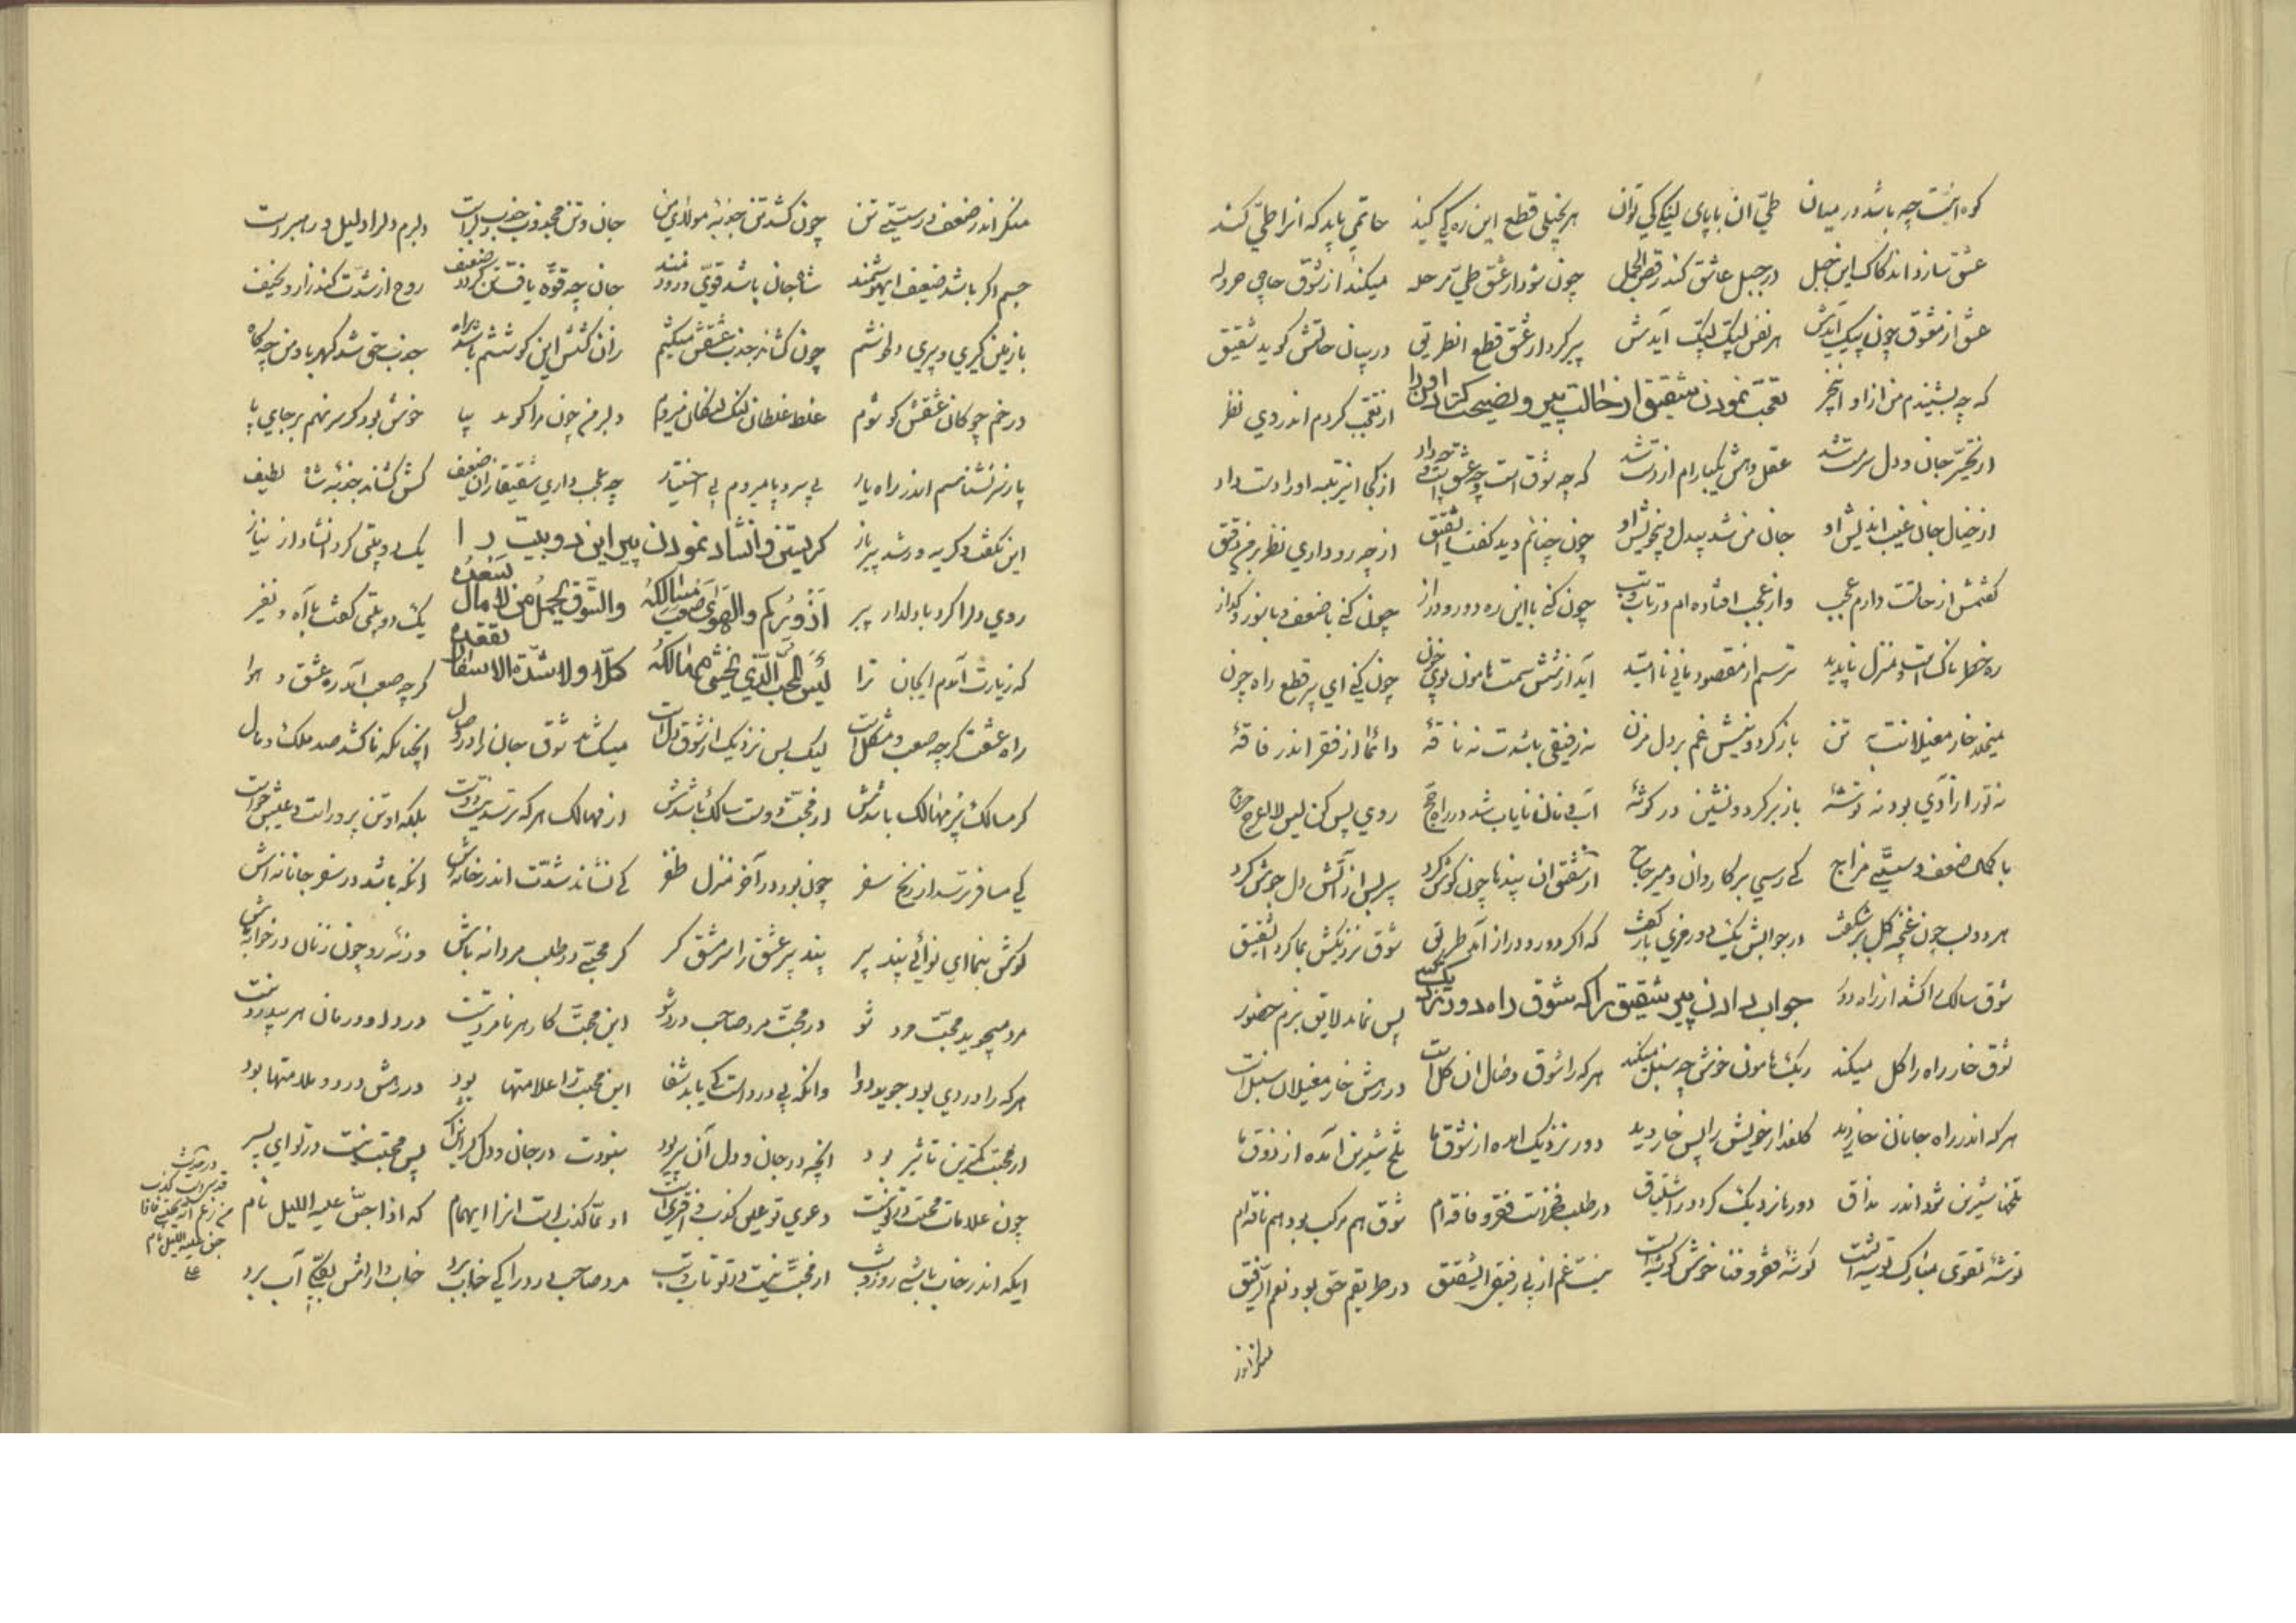 کوه انیّت چه باشد در میان طیّ آن با پای لنگی کی توان هر بخیلی قطع این ره کی کند حاتمی باید که انرا طیّ کند
عشق سازد اندکاک این جبل در جبل عاشق کند رقص الجمل چون شود از عشق طیّ مرحله میکند از شوق حاجی هروله
عشق از معشوق چون پیک آیدش هر نفس لبّیک لبّیک آیدش پیر کرد از عشق قطع انطریق در بیان حالتش گوید شقیق
که چه بشنیدم من از او اینخبر تعجّب نمودن شقیق از حالت پیر و نصیحت کردن او را از تعجّب کردم اندر وی نظر
از تحیّر جان و دل سرمست شد عقل و هش یکبارم از دست شد که چه شوق است و چه عشق است از کجا اینرتبه او را دست داد
از خیال جان غیب اندیش او جان من شد بیدل و بیخویش او چون چنانم دید گفت ای شقیق از چه رو داری نظر بر من دقیق
گفتمش از حالتت دارم عجب و از عجب افتاده ام در تاب و تب چون کنی با این ره دور و دراز چون کنی با ضعف و با سوز و گداز
ره خطرناک است و منزل ناپدید ترسم از مقصود مانی ناامید آید از شش سمت هامون بوی خون چون کنی ای پیر قطع راه چون
میخلد خار مغیلانت به تن باز گرد و نیش غم بر دل مزن نه رفیقی باشدت نه ناقهٔ دائما از فقر اندر فاقهٔ
نه تو را زادی بود نه توشهٔ باز برگرد و نشین در گوشهٔ آب و نان نایاب شد در راه حجّ روی پس کن لیس للاعرج حرج
با کمال ضعف و سستیّ مزاج کی رسی بر کاروان و میر حاج از شقیق ان پندها چون گوش کرد پیر پس از آتش دل جوش کرد
هر دو لب چون غنچه گل برشکفت در جوابش یک دو رمزی باز گفت که اگر دور و دراز آمد طریق شوق نزدیکش بما کرد ای شقیق
شوق سالک را کشد از راه دور جواب دادن پیر شقیق را که شوق راه دور نزدیک کند پس نماید لایق بزم حضور
شوق خار راه را گل میکند ریگ هامون خوش چه سنبل میکند هر که را شوق وصال ان گل است در رهش خار مغیلان سنبل است
هر که اندر راه جانان خار دید گلعذار خویش را پس خار دید دور نزدیک امده از شوق ما تلخ شیرین آمده از ذوق ما
تلخها شیرین شود اندر مذاق دورها نزدیک گردد ز اشتیاق در طلب فخر است فقر و فاقه ام شوق هم مرکب بود هم ناقه ام
توشهٔ تقوی مبارک توشه است گوشهٔ فقر و فنا خوش گوشه است نیست غم از بی رفیقی ای شقیق در طریقم حق بود نعم الرفیق
منکر اندر
منکر اندر ضعف و سستیّ تن چون کشد تن جذبهٔ مولای من جان و تن مجذوب جذب دلبر است دلبرم دلرا دلیل و رهبر است
جسم اگر باشد ضعیف ای هوشمند شاه جان باشد قوی و زورمند جان چه قوّه یافت تن گردد ضعیف روح از شدّت کند زار و نحیف
باز یلن گیری و پیری دلخوشم چون کشاند جذب عشقش میکشم زان کشش این کوششم باشد براه جذب حق شد کهربا و من چه کاه
در خم چوگان عشقش گو شوم غلط غلطان لنگ لنگان میروم دلبر من چون مرا گوید بیا خوش بود گر سر نهم بر جای پا
پا ز سر نشناسم اندر راه یار بی سر و پا میروم بی اختیار چه عجب داری شقیقا زان ضعیف کش کشاند جذبهٔ شاه لطیف
این بگفت و گریه ور شد پیر باز گریستن و انشاد نمودن پیر این دو بیت را یک دو بیتی کرد انشاد از نیاز
روی دلرا کرد با دلدار پیر اَزُورُکُم والهَوی صَعبٌ مَسالِکُهُ والشّوق یحمل من لا مال یسعده یک دو بیتی گفت با آه و نفیر
که زیارت آمدم ای جان ترا لَیسَ المُحِبّ الّذی یَخشی مَهالِکَهُ کلّا ولا شدّة الاسفار تقعده گر چه صعب آمد ره عشق و هوا
راه عشقت گر چه صعب و مشکل است لیک بس نزدیک از شوق دل است میکشد شوق جان را در وصال انچنانکه ناکشد صد ملک و مال
گر مسالک پر مهالک باشدش در محبّت دوست سالک باشدش از مهالک هر که ترسد نیست دوست بلکه او تن پرور است و عیش جوست
کی مسافر ترسد از رنج سفر چون بود در آخر منزل ظفر کی نشاند شدّت اندر خانه اش انکه باشد در سفر جانانه اش
گوش بنما ای نوائی پند پیر پند پیر عشق را سرمشق گیر گر محبّی در طلب مردانه باش ورنه رو چون زنان در خانه باش
مرد میجوید محبّت مرد شو در محبّت مرد صاحب درد شو این محبّت کار هر نامرد نیست درد او درمان هر بیدرد نیست
هر که را دردی بود جوید دوا وانکه بی درد است کی یابد شفا این محبّت را علامتها بود در رهش درد و ملامتها بود
از محبّت کمترین تاثیر بود انچه در جان و دل آن پیر بود نبودت در جان و دل گر این اثر پس محبّت نیست در تو ای پسر
چون علامات محبّت در تو نیست دعوی تو عین کذب و مفتریست ادعا کذب است انرا ای همام که اذا جنّ علیه اللیل نام
ایکه اندر خاب باشی روز و شب از محبّت نیست در تو تاب و تب مرد صاحب درد را کی خاب برد خاب دارانش
در حدیث
قدسی است کذب
من زعم انه یحبّنی فاذا
جنّ علیه اللیل نام